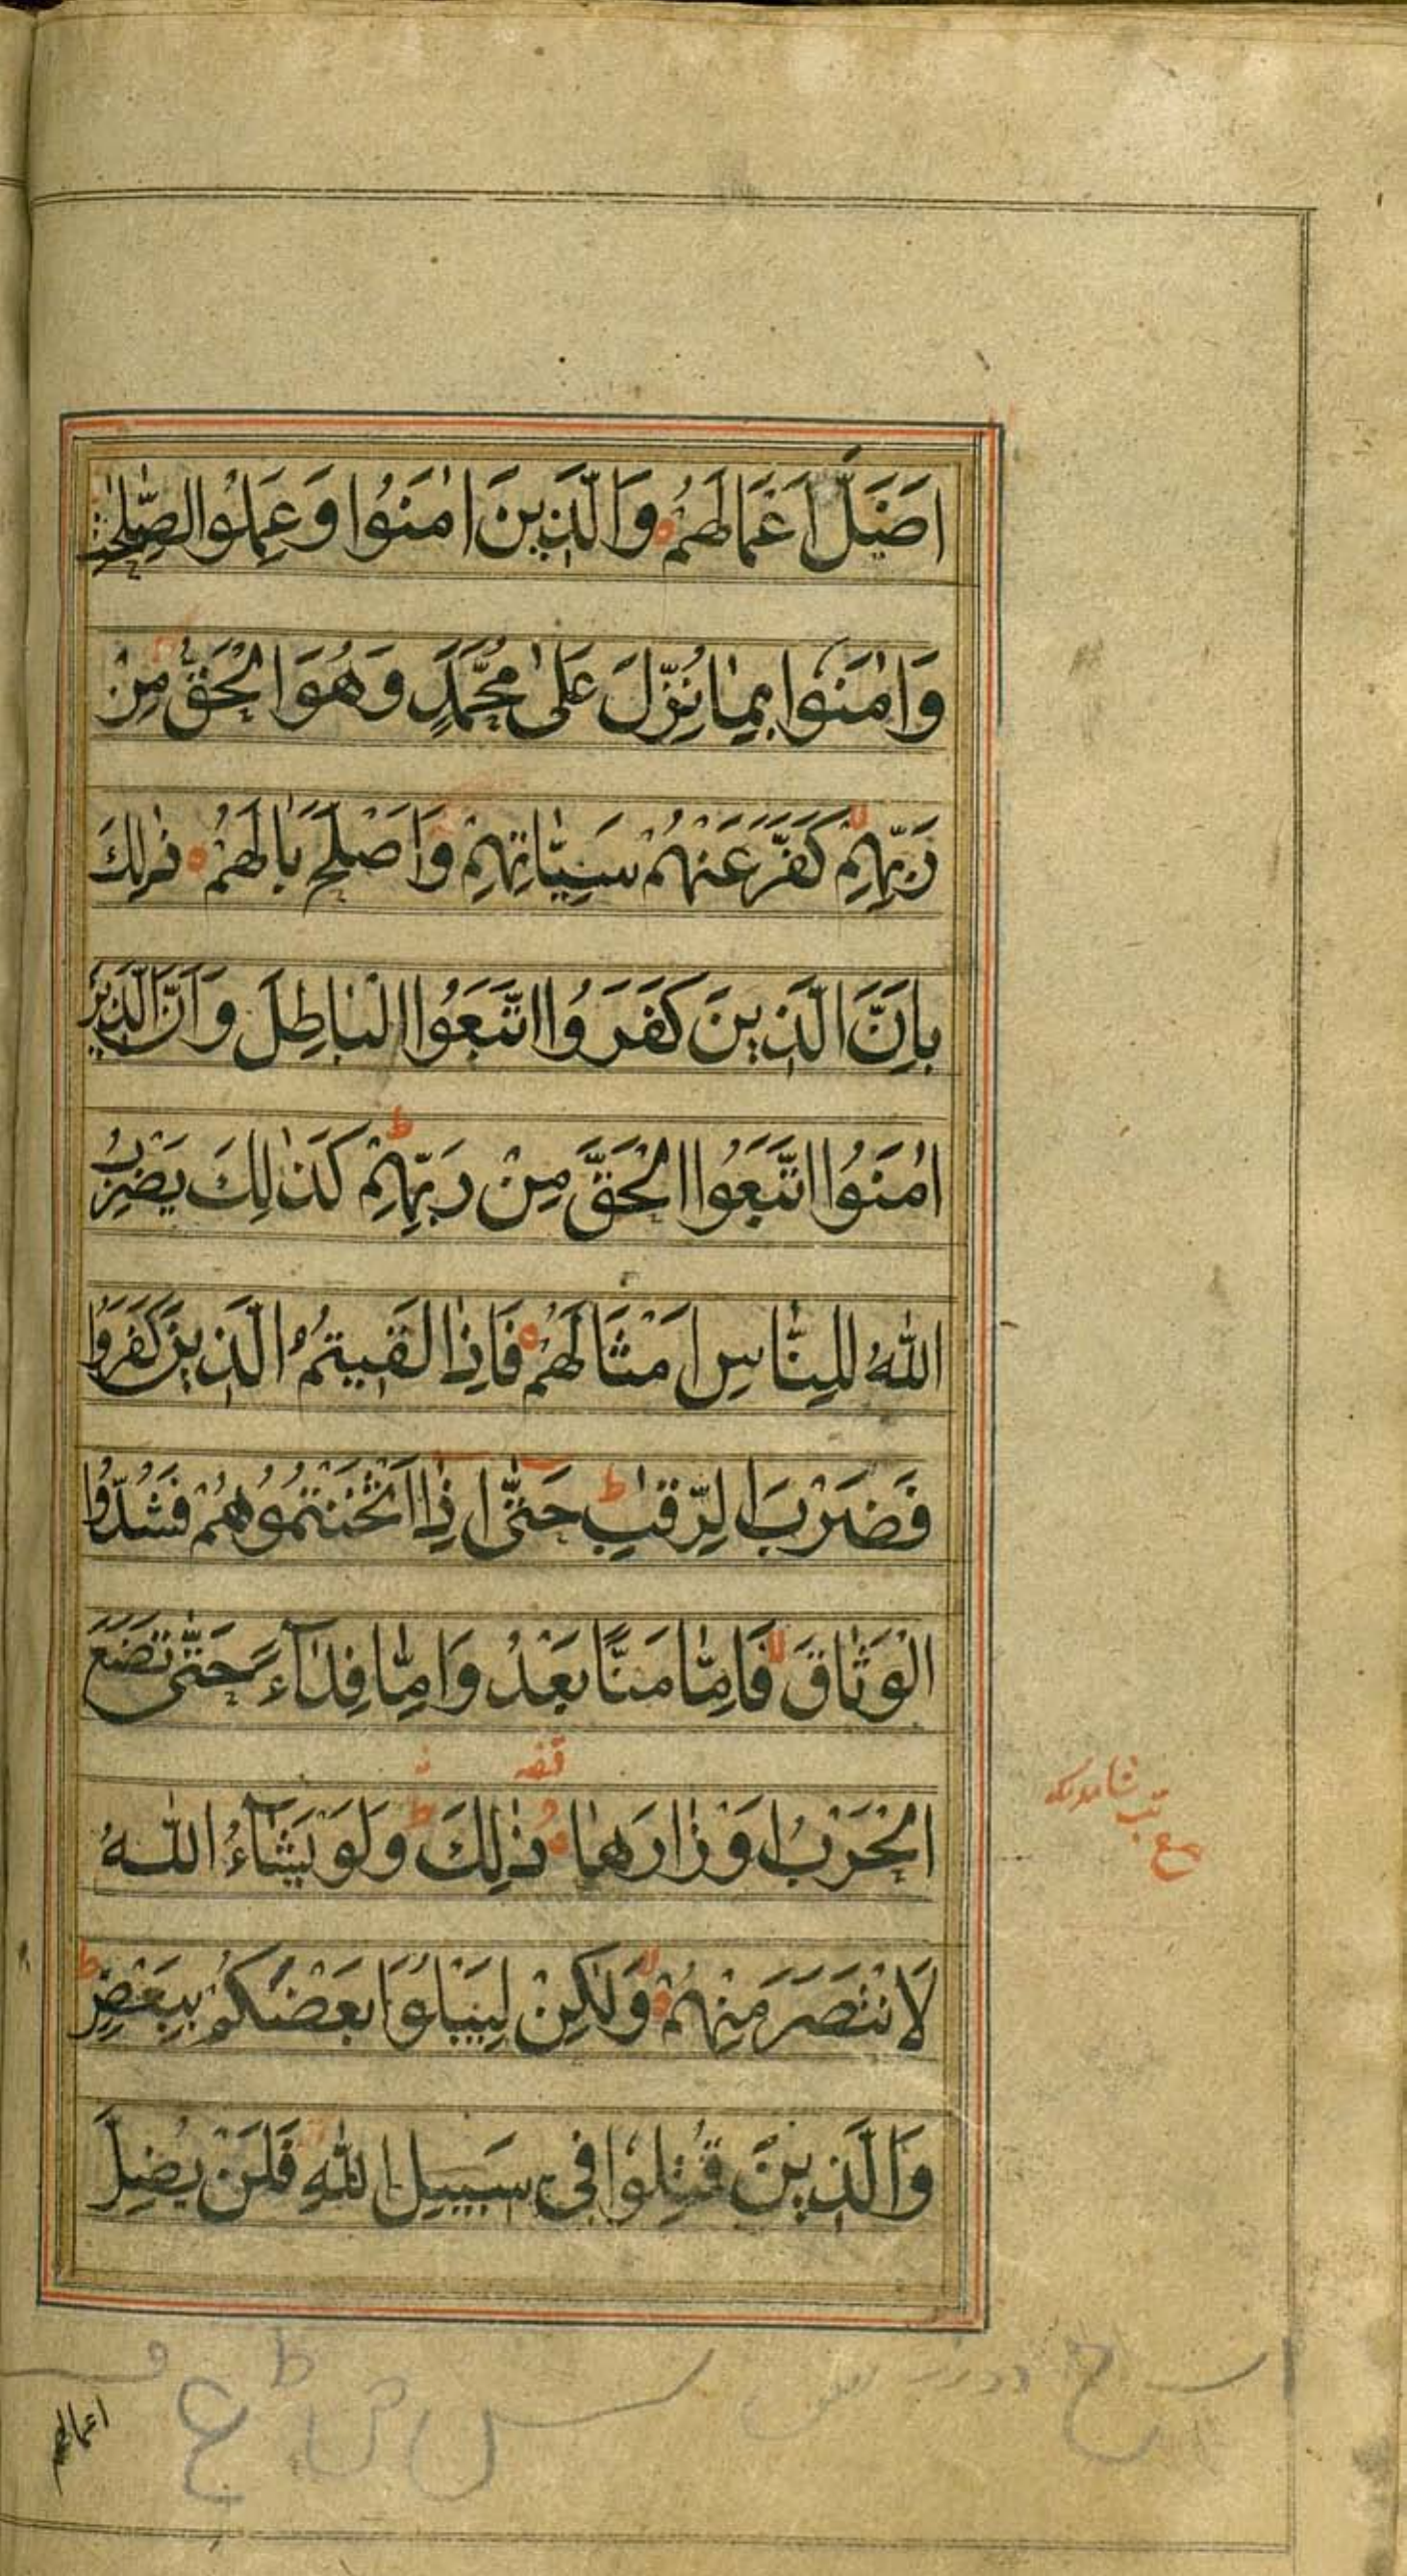 اَضَلَّ اَعْمَالَهُمْ وَالَّذِينَ اٰمَنُوا وَعَمِلُوا الصّٰلِحٰتِ
وَاٰمَنُوا بِمَا نُزِّلَ عَلٰى مُحَمَّدٍ وَهُوَ الْحَقُّ مِنْ
رَبِّهِمْ كَفَّرَ عَنْهُمْ سَيِّاٰتِهِمْ وَاَصْلَحَ بَالَهُمْ ذٰلِكَ
بِاَنَّ الَّذِينَ كَفَرُوا اتَّبَعُوا الْبَاطِلَ وَاَنَّ الَّذِينَ
اٰمَنُوا اتَّبَعُوا الْحَقَّ مِنْ رَبِّهِمْ ط كَذٰلِكَ يَضْرِبُ
اللّٰهُ لِلنَّاسِ اَمْثَالَهُمْ فَاِذَا لَقِيتُمُ الَّذِينَ كَفَرُوا
فَضَرْبَ الرِّقَابِ ط حَتّٰى اِذَا اَثْخَنْتُمُوهُمْ فَشُدُّوا
الْوَثَاقَ لا فَاِمَّا مَنًّا بَعْدُ وَاِمَّا فِدَآءً حَتّٰى تَضَعَ
الْحَرْبُ اَوْزَارَهَا ذٰلِكَ ط وَلَوْ يَشَآءُ اللّٰهُ
لَانْتَصَرَ مِنْهُمْ لا وَلٰكِنْ لِيَبْلُوَا بَعْضَكُمْ بِبَعْضٍ ط
وَالَّذِينَ قُتِلُوا فِى سَبِيلِ اللّٰهِ فَلَنْ يُضِلَّ
اعمالهم